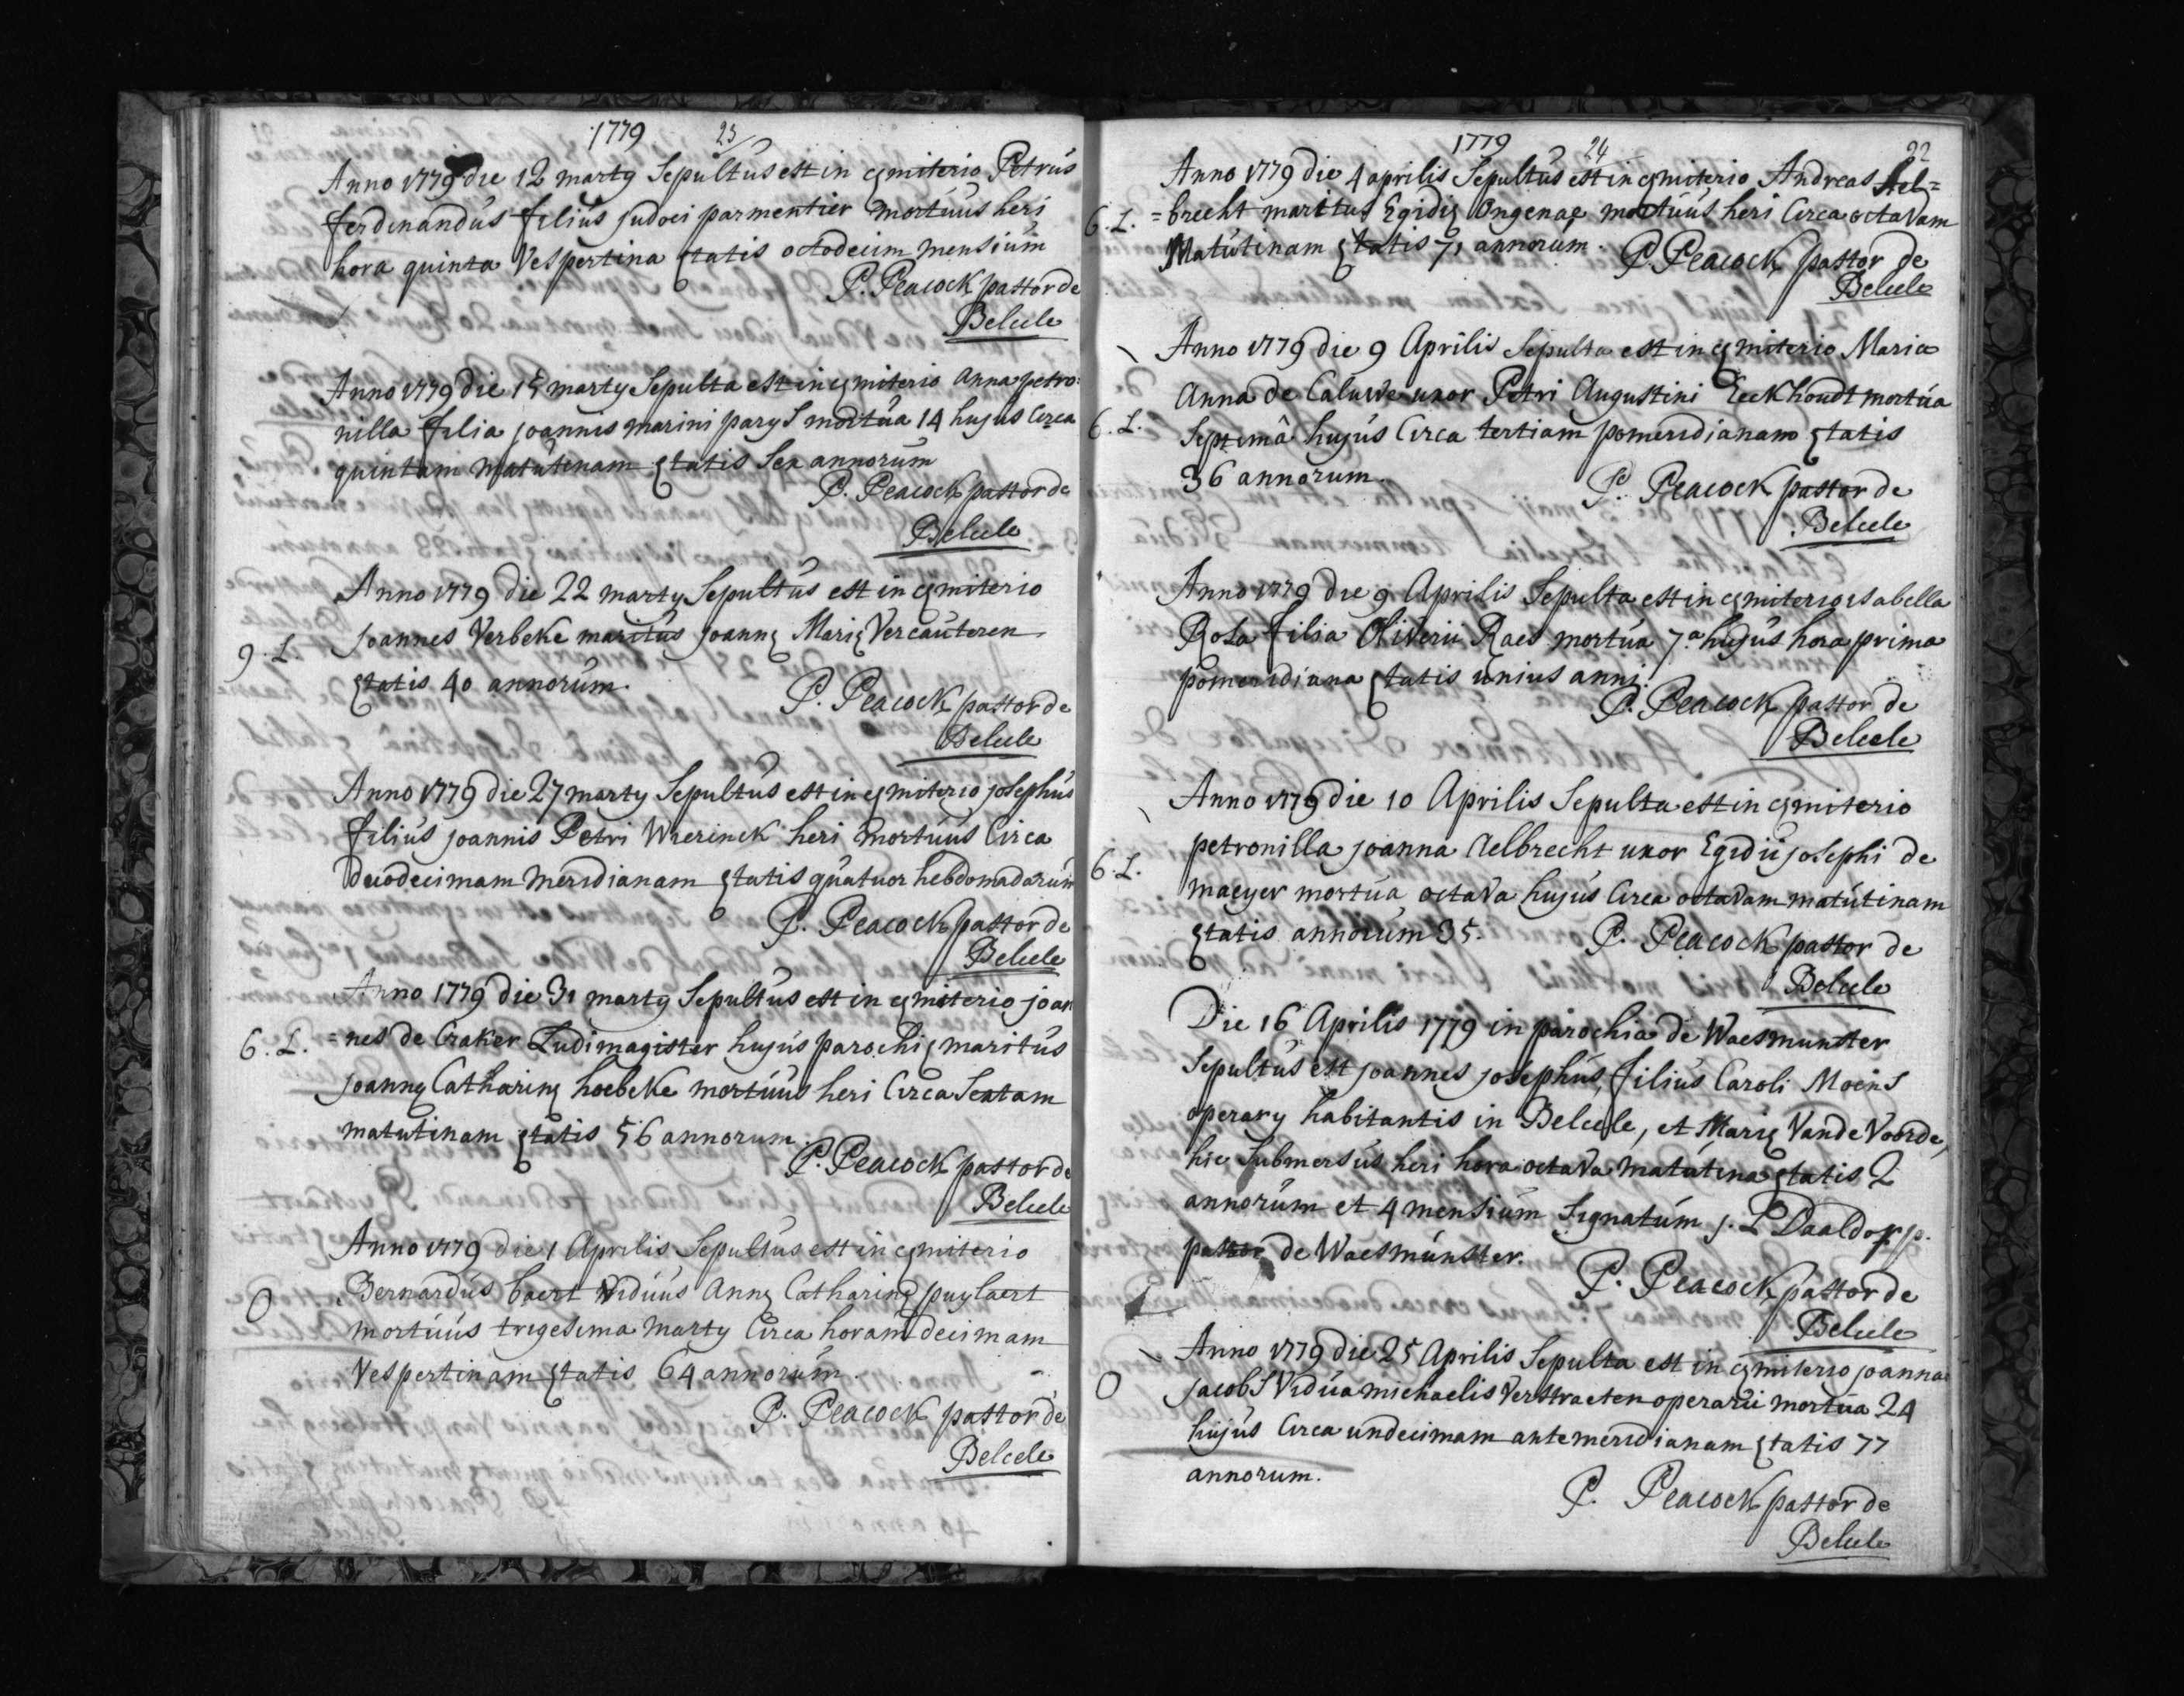 1779 23
Anno 1779 die 12 marty Sepultus est in cęmiterio Petrus
ferdinandus filius judoci parmentier mortuus heri
hora quinta Vespertina ętatis octodecim mensium
P. Peacock pastor de
Belcele
Anno 1779 die 15 marty Sepulta est in cęmiterio Anna petro=
nilla filia joannis marini parys mortua 14 hujus Circa
quintam matutinam ętatis Sex annorum
P. Peacock pastor de
Belcele
Anno 1779 die 22 marty Sepultus est in cęmiterio
joannes Verbeke maritus joannę Marię Vercauteren
9. L.
ętatis 40 annorum.
P. Peacock pastor de
Belcele
Anno 1779 die 27 marty Sepultus est in cęmiterio josephus
filius joannis Petri Wierinck heri mortuus Circa
duodecimam meridianam ętatis quatuor hebdomadarum
P. Peacock pastor de
Belcele
Anno 1779 die 31 marty Sepultus est in cęmiterio joan
6. L. =nes de Craker Ludimagister hujus parochię maritus
joannę Catharinę hoebeke mortuus heri Circa Sextam
matutinam ętatis 56 annorum.
P. Peacock pastor de
Belcele
Anno 1779 die 1 Aprilis Sepultus est in cęmiterio
Bernardus baert Viduus Annę Catharinę puylaert
O
mortuus trigesima Marty Circa horam decimam
Vespertinam ętatis 64 annorum.
P. Peacock pastor de
Belcele
1779 24 22
Anno 1779 die 4 aprilis Sepultus est in cęmiterio Andreas Ael=
6. L. =brecht maritus Egidię Ongenae mortuus heri Circa octavam
Matutinam ętatis 71 annorum. P. Peacock pastor de
Belcele
Anno 1779 die 9 Aprilis Sepulta est in cęmiterio Maria
Anna de Caluwe uxor Petri Augustini Eeckhoudt mortua
6. L. Septimâ hujus Circa tertiam pomeridianam ętatis
36 annorum.
P. Peacock pastor de
Belcele
Anno 1779 die 9 Aprilis Sepulta est in cęmiterio isabella
Rosa filia Oliverii Raes mortua 7.a hujus hora prima
pomeridiana ętatis unius anni.
P. Peacock pastor de
Belcele
Anno 1779 die 10 Aprilis Sepulta est in cęmiterio
petronilla joanna Aelbrecht uxor Egidii josephi de
6. L.
maeyer mortua octava hujus Circa octavam matutinam
ętatis annorum 35.
P. Peacock pastor de
Belcele
Die 16 Aprilis 1779 in parochia de Waesmunster
Sepultus est joannes josephus, filius Caroli Moens
operary habitantis in Belcele, et Marię Vande Voorde,
hic Submersus heri hora octava matutina ętatis 2
annorum et 4 mensium Signatum j. L Daaldorp.
pastor de Waesmunster.
P. Peacock pastor de
Belcele
Anno 1779 die 25 Aprilis Sepulta est in cęmiterio joanna
O jacobs Vidua michaelis Verstraeten operarii mortua 24
hujus Circa undecimam antemeridianam ętatis 77
annorum.
P. Peacock pastor de
Belcele